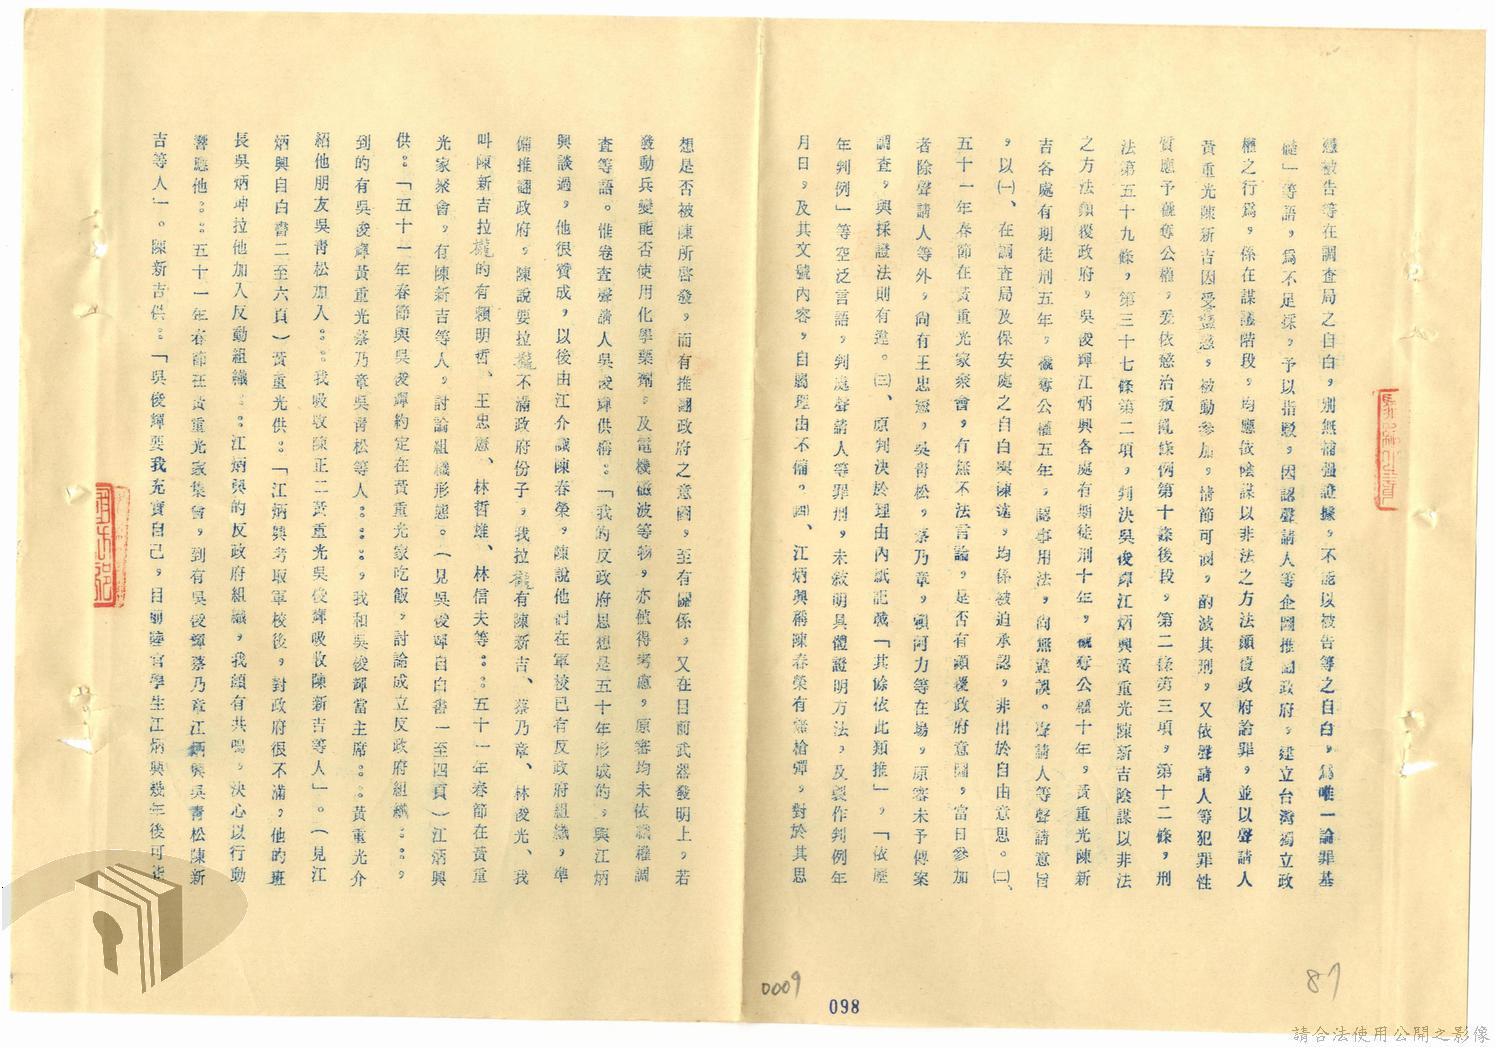 憑被告等在調查局之自白，別無補強證據，不能以被告等之自白，為唯一論罪基
礎」等語，為不足採，予以指駁，因認聲請人等企圖推翻政府，建立台灣獨立政
權之行為，係在謀議階段，均應依陰謀以非法之方法顛覆政府論罪，並以聲請人
黃重光陳新吉因受蠱惑，被動參加，情節可憫，酌減其刑，又依聲請人等犯罪性
質應予褫奪公權，爰依懲治叛亂條例第十條後段，第二條第三項，第十二條，刑
法第五十九條，第三十七條第二項，判決吳俊輝江炳興黃重光陳新吉陰謀以非法
之方法顛覆政府，吳俊輝江炳興各處有期徒刑十年，褫奪公權十年，黃重光陳新
吉各處有期徒刑五年，褫奪公權五年，認事用法，尚無違誤。聲請人等聲請意旨
，以㈠、在調查局及保安處之自白與陳述，均係被迫承認，非出於自由意思。㈡、
五十一年春節在黃重光家聚會，有無不法言論，是否有顛覆政府意圖，當日參加
者除聲請人等外，尚有王忠憲，吳青松，蔡乃章，賴阿力等在場，原審未予傳案
調查，與採證法則有違。㈢、原判決於理由內祇記載「其餘依此類推」，「依歷
年判例」等空泛言語，判處聲請人等罪刑，未敘明具體證明方法，及製作判例年
月日，及其文號內容，自屬理由不備。㈣、江炳興稱陳春榮有無槍彈，對於其思
想是否被陳所啓發，而有推翻政府之意圖，至有關係，又在目前武器發明上，若
發動兵變能否使用化學藥劑，及電機磁波等物，亦值得考慮，原審均未依職權調
查等語。惟卷查聲請人吳俊輝供稱：「我的反政府思想是五十年形成的，與江炳
興談過，他很贊成，以後由江介識陳春榮，陳說他們在軍校已有反政府組織，準
備推翻政府，陳說要拉攏不滿政府份子，我拉攏有陳新吉、蔡乃章、林俊光、我
叫陳新吉拉攏的有賴明哲、王忠憲、林哲雄、林信夫等：：五十一年春節在黃重
光家聚會，有陳新吉等人，討論組織形態。（見吳俊輝自白書一至四頁）江炳興
供：：「五十一年春節與吳俊輝約定在黃重光家吃飯，討論成立反政府組織：：，
到的有吳俊輝黃重光蔡乃章吳青松等人：：：：，我和吳俊輝當主席：：黃重光介
紹他朋友吳青松加入：：我吸收陳正二黃重光吳俊輝吸收陳新吉等人」。（見江
炳興自白書二至六頁）黃重光供：「江炳興考取軍校後，對政府很不滿，他的班
長吳炳坤拉他加入反動組織：：江炳興的反政府組織，我頗有共鳴，決心以行動
響應他：：五十一年春節在黃重光家集會，到有吳俊輝蔡乃章江炳興吳青松陳新
吉等人」。陳新吉供：「吳俊輝要我充實自己，目前陸官學生江炳興幾年後可能
0009
098
87
請合法使用公開之影像